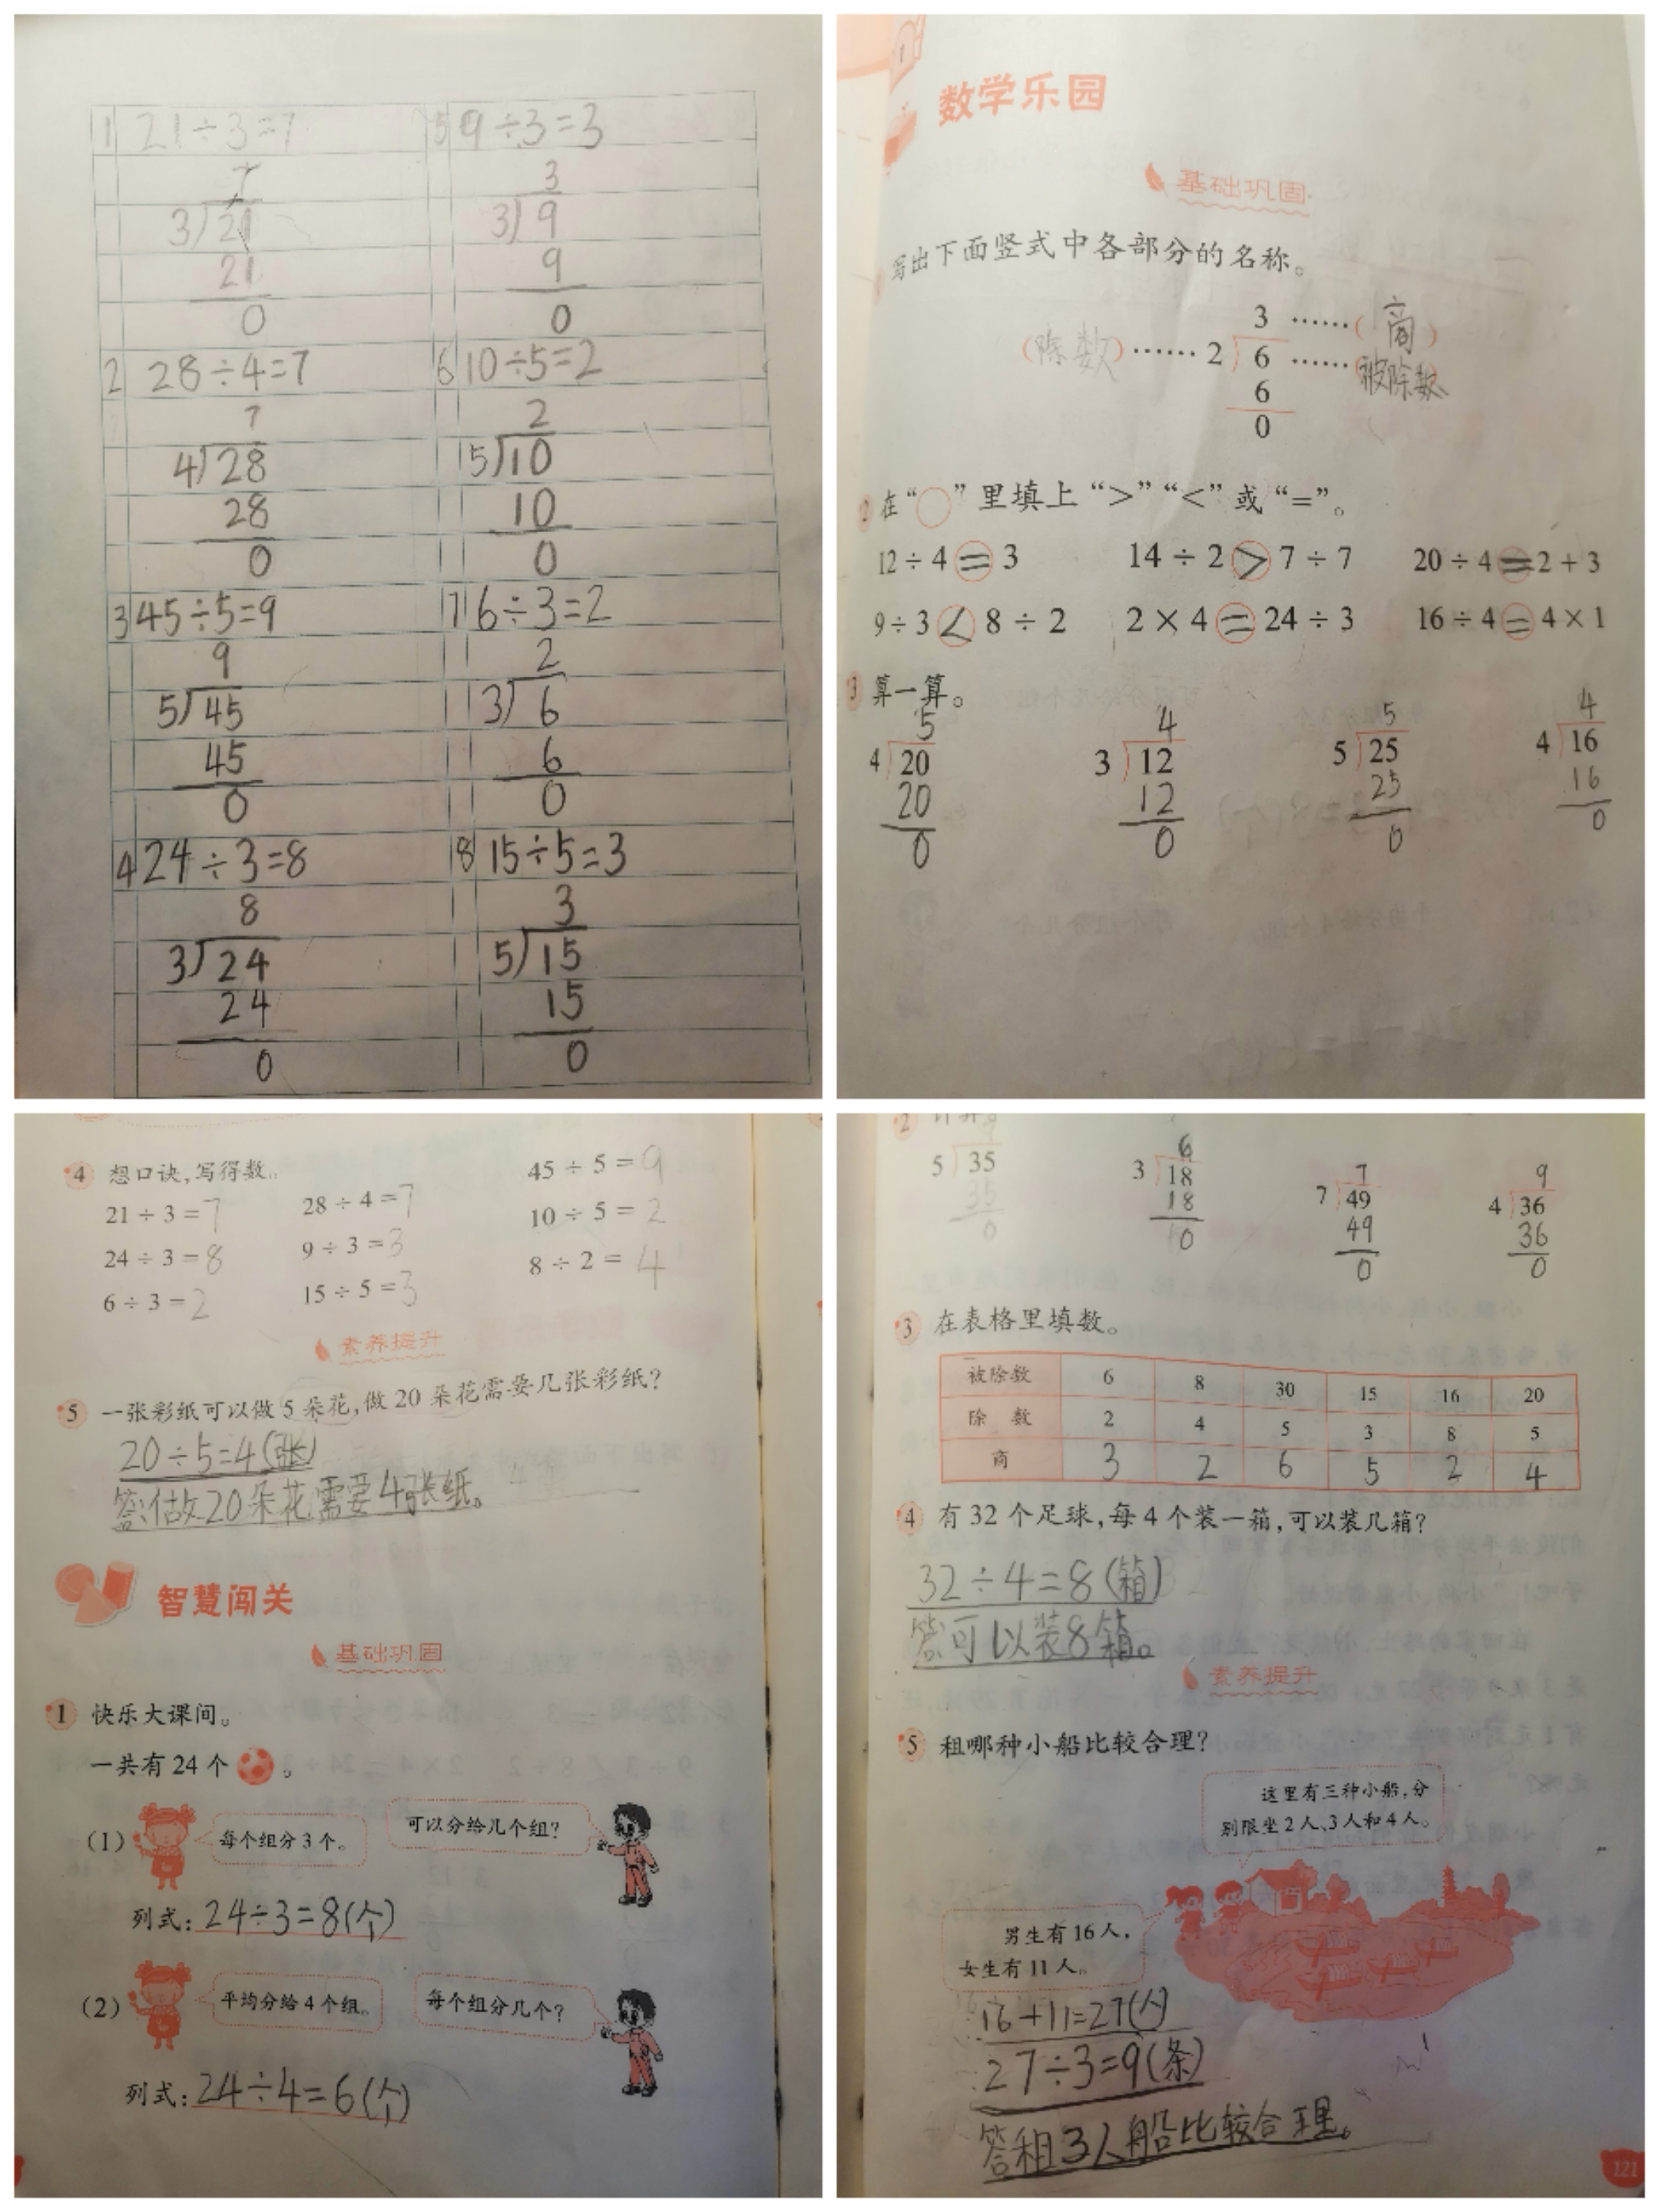 1 21÷3=7
7
3 21
21
0
2 28÷4=7
7
4 28
28
0
3 45÷5=9
9
5 45
45
0
4 24÷3=8
8
3 24
24
0
5 9÷3=3
3
3 9
9
0
6 10÷5=2
2
5 10
10
0
7 6÷3=2
2
3 6
6
0
8 15÷5=3
3
5 15
15
0
数学乐园
基础巩固
写出下面竖式中各部分的名称。
3 ……(商)
(除数)……2 6 ……(被除数)
6
0
2 在“○”里填上“>”“<”或“=”。
12÷4=3 14÷2>7÷7 20÷4=2+3
9÷3<8÷2 2×4=24÷3 16÷4=4×1
3 算一算。
5 4 5 4
4 20 3 12 5 25 4 16
20 12 25 16
0 0 0 0
4 想口诀,写得数。
21÷3=7 28÷4=7 45÷5=9
24÷3=8 9÷3=3 10÷5=2
6÷3=2 15÷5=3 8÷2=4
素养提升
5 一张彩纸可以做5朵花,做20朵花需要几张彩纸?
20÷5=4(张)
答:做20朵花需要4张纸。
智慧闯关
基础巩固
1 快乐大课间。
一共有24个 。
(1) 每个组分3个。 可以分给几个组?
列式:24÷3=8(个)
(2) 平均分给4个组。 每个组分几个?
列式:24÷4=6(个)
2
6 7 9
5 35 3 18 7 49 4 36
35 18 49 36
0 0 0 0
3 在表格里填数。
被除数 6 8 30 15 16 20
除数 2 4 5 3 8 5
商 3 2 6 5 2 4
4 有32个足球,每4个装一箱,可以装几箱?
32÷4=8(箱)
答:可以装8箱。
素养提升
5 租哪种小船比较合理?
这里有三种小船,分
别限坐2人、3人和4人。
男生有16人,
女生有11人。
16+11=27(人)
27÷3=9(条)
答租3人船比较合理。
121